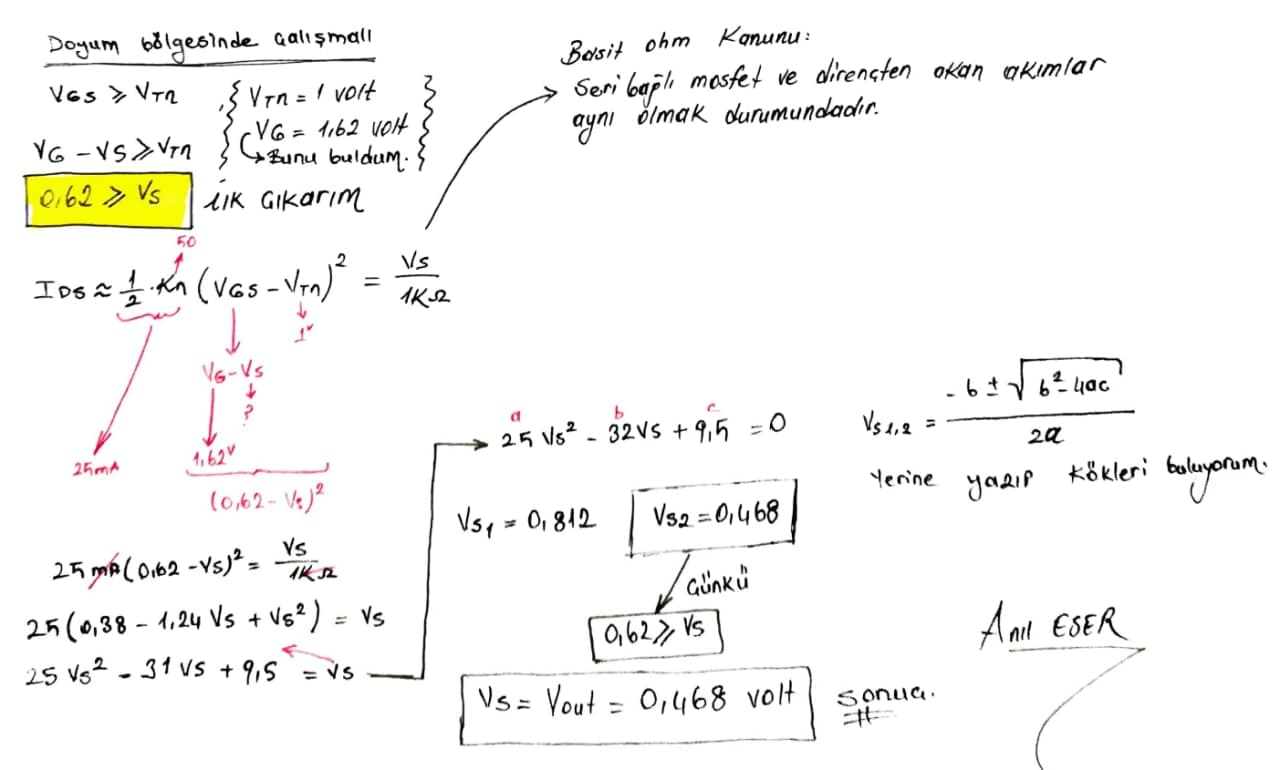 Doyum bölgesinde çalışmalı
VGS ⩾ VTn
{ VTn = 1 volt
VG = 1,62 volt
↳ Bunu buldum. }
VG - VS ⩾ VTn
0,62 ⩾ VS ilk çıkarım
Basit ohm Kanunu:
→ Seri bağlı mosfet ve dirençten akan akımlar
aynı olmak durumundadır.
50
IDS ≈ 1/2 · Kn (VGS - VTn)² = VS / 1KΩ
1V
VG - VS
?
25mA
1,62V
(0,62 - VS)²
25 mA (0,62 - VS)² = VS / 1KΩ
25 (0,38 - 1,24 VS + VS²) = VS
25 VS² - 31 VS + 9,5 = VS
a b c
25 VS² - 32 VS + 9,5 = 0
VS1,2 = -b ± √b² - 4ac / 2a
Yerine yazıp kökleri buluyorum.
VS1 = 0,812
VS2 = 0,468
Çünkü
0,62 ⩾ VS
VS = Vout = 0,468 volt sonuç.
Anıl ESER